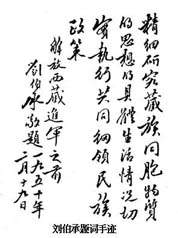 精细研究藏族同胞物质
的思想的具体生活情况切
实执行共同纲领民族
政策
解放西藏进军之前
刘伯承敬题一九五〇年
二月十九日
刘伯承题词手迹